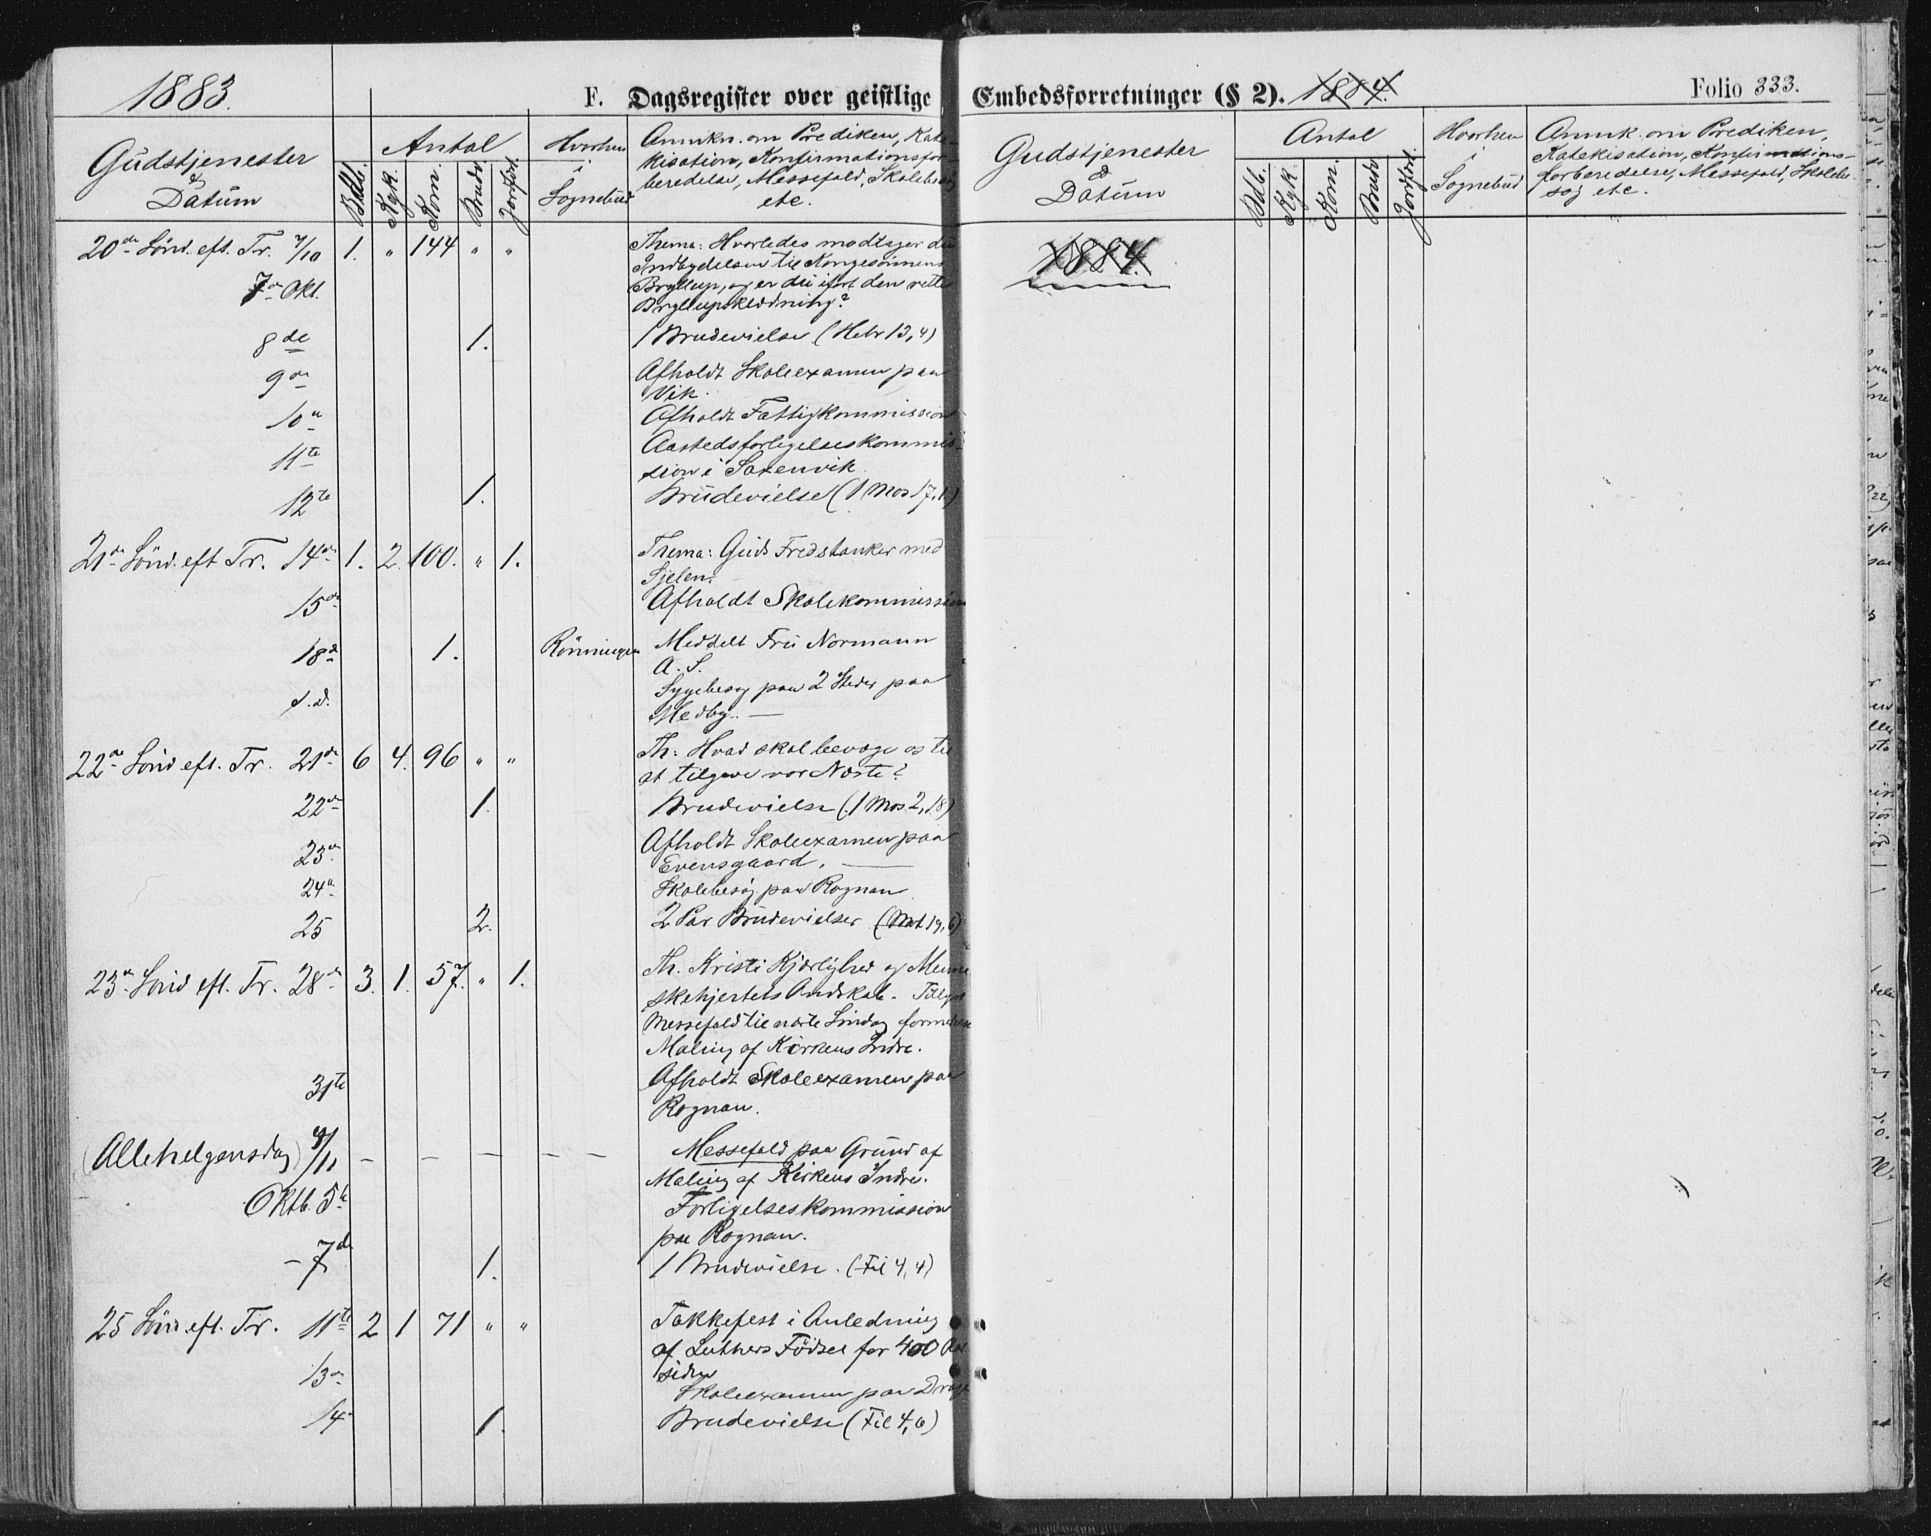 1883.
F. Dagsregister over geistlige
Gudstjenester
&
Datum
Antal
Bldb.
Kgk.
Kom.
Brudv.
Jordfst.
Hvorhen
i
Sognebud
Anmkn. om Prediken, Kate-
kisation, Konfirmationsfor-
beredelse, Messefald, Skolebesøg
etc.
20de Sønd. eft. Tr. 7/10 1. " 144 " "
Thema: Hvorledes modtager du
Indbydelsen til Kongesønnens
7de Okt.
Bryllup, og er du ifört den rette
Bryllupsklædning?
8de 1. 1 Brudevielse (Hebr 13,4)
9de Afholdt Skoleexamen paa
Vik.
10de Afholdt Fattigkommission
11te Aastedsforligelseskommis-
sion i Saxenvik.
12te 1. Brüdevielse (1 Mos 17,1)
21de Sönd. eft Tr. 14de 1. 2. 100. " 1. Thema: Guds Fredstanker med
Sjelen.
15de Afholdt Skolekommission
18de 1. Rönningen Meddelt Fru Normann
A. S.
s.d. Sygebesøg paa 2 Steder paa
Medby. —
22de Sönd eft. Tr. 21de 6 4. 96 " " Th: Hvad skal bevæge os til
at tilgive vor Næste?
22de 1. Brudevielse (1 Mos 2,18)
23de Afholdt Skoleexamen paa
Evensgaard. —
24de Skolebesøg paa Rognan
25 2. 2 Par Brüdevielser (Mat 19,6)
23de Sönd eft. Tr. 28de 3. 1. 57. " 1. Th. Kristi Kjærlighed og Menne
skehjertets Ondskab. Tillyst
Messefald til næste Søndag formedelst
Maling af Kirkens Indre.
31te Afholdt Skoleexamen paa
Rognan.
(Allehelgensdag) 4/11 – – – – – Messefald paa Grund af
Maling af Kirkens Indre.
Oktb. 5te Forligelseskommission
paa Rognan.
– 7de 1. 1 Brudevielse. (Fil 4,4)
25 Sönd. eft. Tr. 11te 2 1 71 " " Takkefest i Anledning
af Luthers Födsel for 400 Aar
siden
13de Skoleexamen paa Drage
14de 1. Brudevielse (Fil 4,6)
Embedsforretninger (§ 2). 1884.
Folio 333.
Gudstjenester
&
Datum
Antal
Bldb.
Kgk.
Kom.
Brudv.
Jordfst.
Hvorhen
i
Sognebud
Anmk. om Prediken,
Katekisation, Konfirmations-
forberedelse, Messefald, Skolebe-
søg etc.
1884.